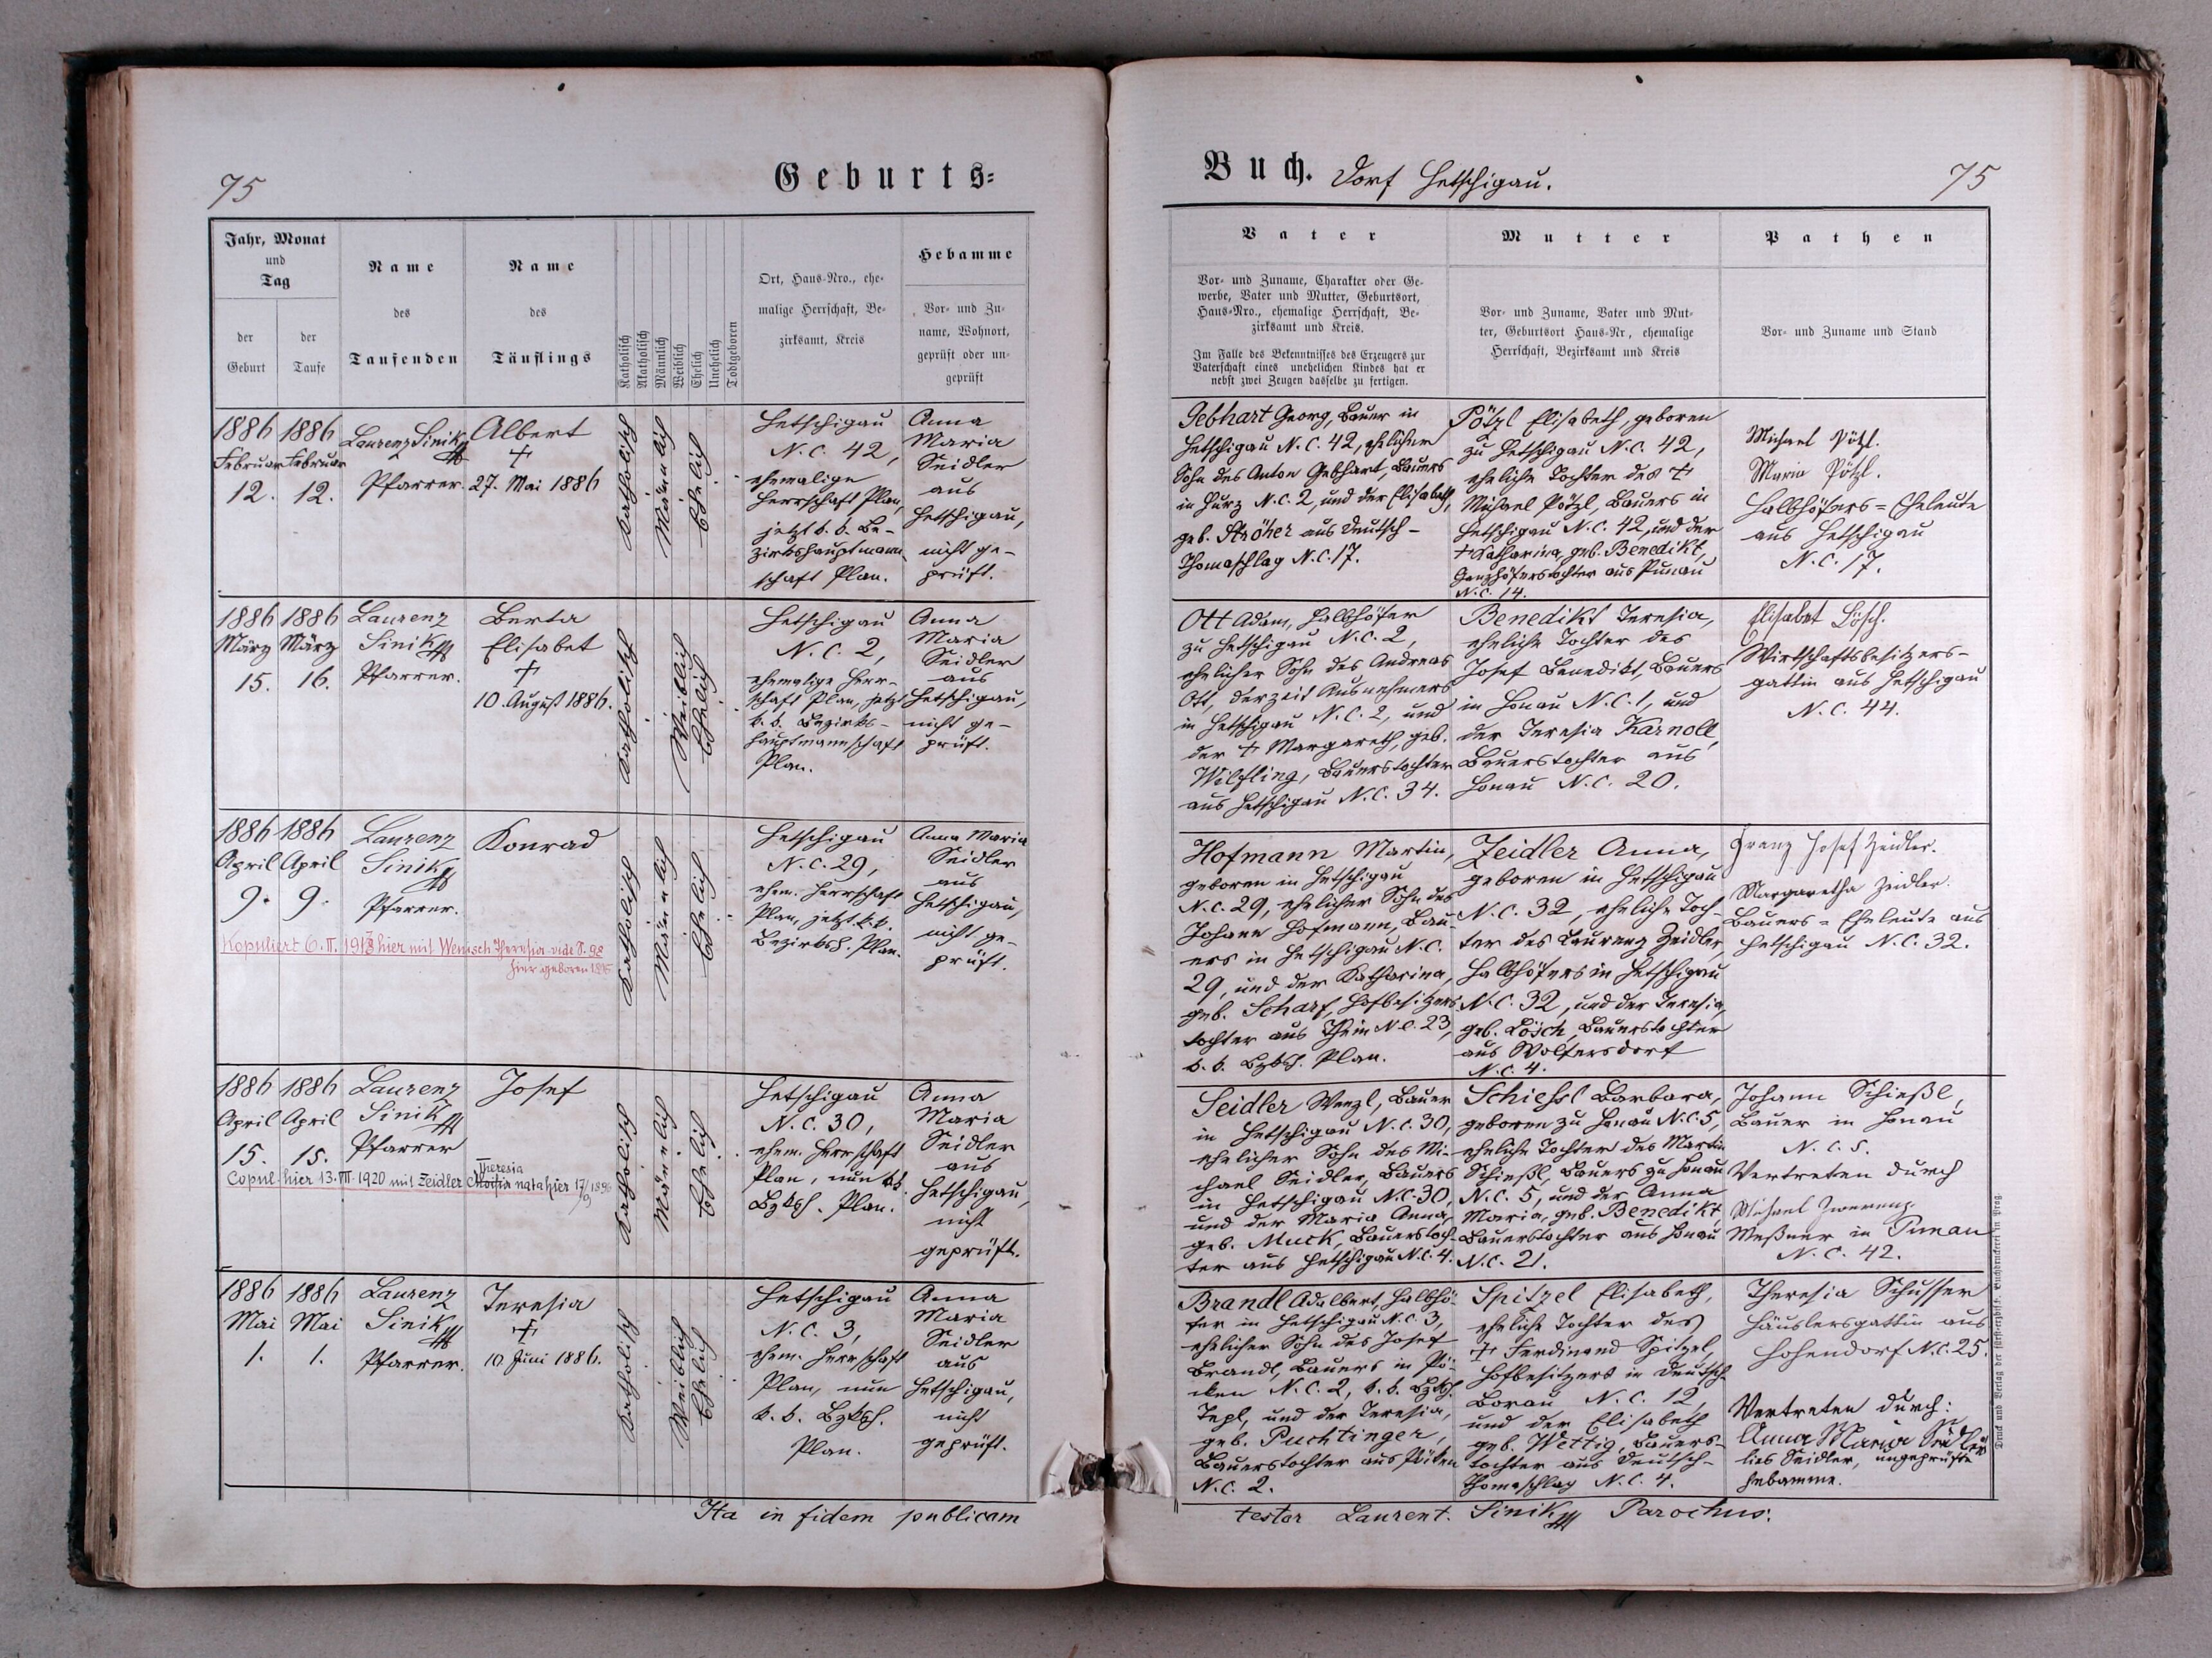 75
Geburts=
Jahr, Monat
und
Tag
der
Geburt
der
Taufe
Name
des
Taufenden
Name
des
Täuflings
Katholisch
Akatholisch
Männlich
Weiblich
Ehelich
Unehelich
Todtgeboren
Ort, Haus-Nro., ehe-
malige Herrschaft, Be-
zirksamt, Kreis
Hebamme
Vor- und Zu-
name, Wohnort,
geprüft oder un-
geprüft
1886
Februar
12.
1886
Februar
12.
Laurenz Sinik
Pfarrer.
Albert
†
27. Mai 1886
Katholisch
Männlich
Ehelich
Hetschigau
N. C. 42,
ehemalige
Herrschaft Plan,
jetzt k. k. Be-
zirkshauptmann-
schaft Plan.
Anna
Maria
Seidler
aus
Hetschigau,
nicht ge-
prüft.
1886
März
15.
1886
März
16.
Laurenz
Sinik
Pfarrer.
Berta
Elisabet
†
10. August 1886.
Katholisch
Weiblich
Ehelich
Hetschigau
N. C. 2,
ehemalige Herr-
schaft Plan, jetzt
k. k. Bezirks-
hauptmannschaft
Plan.
Anna
Maria
Seidler
aus
Hetschigau,
nicht ge-
prüft.
1886
April
9.
1886
April
9.
Laurenz
Sinik
Pfarrer.
Konrad
Kopuliert 6. II. 1918 hier mit Wenisch Theresia vide S. 98
hier geboren 1895
Katholisch
Männlich
Ehelich
Hetschigau
N. C. 29,
ehem. Herrschaft
Plan, jetzt k. k.
Bezirksh. Plan.
Anna Maria
Seidler
aus
Hetschigau,
nicht ge-
prüft.
1886
April
15.
1886
April
15.
Laurenz
Sinik
Pfarrer
Josef
Theresia
Copul. hier 13. III. 1920 mit Zeidler Maria nata hier 17/9 1896
Katholisch
Männlich
Ehelich
Hetschigau
N. C. 30,
ehem. Herrschaft
Plan, nun k. k.
Bzksh. Plan.
Anna
Maria
Seidler
aus
Hetschigau,
nicht
geprüft.
1886
Mai
1.
1886
Mai
1.
Laurenz
Sinik
Pfarrer.
Teresia
†
10. Juni 1886.
Katholisch
Weiblich
Ehelich
Hetschigau
N. C. 3,
ehem. Herrschaft
Plan, nun
k. k. Bzksh.
Plan.
Anna
Maria
Seidler
aus
Hetschigau,
nicht
geprüft.
Ita in fidem publicam
Buch. Dorf Hetschigau.
75
Vater
Vor- und Zuname, Charakter oder Ge-
werbe, Vater und Mutter, Geburtsort,
Haus-Nro., ehemalige Herrschaft, Be-
zirksamt und Kreis.
Im Falle des Bekenntnisses des Erzeugers zur
Vaterschaft eines unehelichen Kindes hat er
nebst zwei Zeugen dasselbe zu fertigen.
Mutter
Vor- und Zuname, Vater und Mut-
ter, Geburtsort Haus-Nr, ehemalige
Herrschaft, Bezirksamt und Kreis
Pathen
Vor- und Zuname und Stand
Gebhart Georg, Bauer in
Hetschigau N. C. 42, ehelicher
Sohn des Anton Gebhart, Bauers
in Hurz N. C. 2, und der Elisabeth,
geb. Ströher aus Deutsch-
Thomaschlag N. C. 17.
Pötzl Elisabeth, geboren
zu Hetschigau N. C. 42,
eheliche Tochter des †
Michael Pötzl, Bauers in
Hetschigau N. C. 42, und der
† Katharina, geb. Benedikt,
Ganzhöferstochter aus Punau
N. C. 14.
Michael Pötzl.
Maria Pötzl.
Halbhöfers=Eheleute
aus Hetschigau
N. C. 17.
Ott Adam, Halbhöfer
zu Hetschigau N. C. 2,
ehelicher Sohn des Andreas
Ott, derzeit Ausnehmers
in Hetschigau N. C. 2, und
der † Margareth, geb.
Wilfling, Bauerstochter
aus Hetschigau N. C. 34.
Benedikt Teresia,
eheliche Tochter des
Josef Benedikt, Bauers
in Honau N. C. 1, und
der Teresia Karnoll,
Bauerstochter aus
Honau N. C. 20.
Elisabet Lösch.
Wirtschaftsbesitzers-
gattin aus Hetschigau
N. C. 44.
Hofmann Martin,
geboren in Hetschigau
N. C. 29, ehelicher Sohn des
Johann Hofmann, Bau-
ers in Hetschigau N. C.
29, und der Katharina,
geb. Scharf, Hofbesitzers-
tochter aus Thein N. C. 23,
k. k. Bzksh. Plan.
Zeidler Anna,
geboren in Hetschigau
N. C. 32, eheliche Toch-
ter des Laurenz Zeidler,
Halbhöfers in Hetschigau
N. C. 32, und der Teresia,
geb. Lösch, Bauerstochter
aus Wolfersdorf
N. C. 4.
Franz Josef Zeidler.
Margaretha Zeidler.
Bauers=Eheleute aus
Hetschigau N. C. 32.
Seidler Wenzl, Bauer
in Hetschigau N. C. 30,
ehelicher Sohn des Mi-
chael Seidler, Bauers
in Hetschigau N. C. 30,
und der Maria Anna,
geb. Muck, Bauerstoch-
ter aus Hetschigau N. C. 4.
Schiessl Barbara,
geboren zu Honau N. C. 5,
eheliche Tochter des Martin
Schießl, Bauers zu Honau
N. C. 5, und der Anna
Maria, geb. Benedikt
Bauerstochter aus Honau
N. C. 21.
Johann Schießl,
Bauer in Honau
N. C. 5.
Vertreten durch
Michael Zwerenz.
Meßner in Punau
N. C. 42.
Brandl Adalbert, Halbhö-
fer in Hetschigau N. C. 3,
ehelicher Sohn des Josef
Brandl, Bauers in Pö-
cken N. C. 2, k. k. Bzksh.
Tepl, und der Teresia,
geb. Puchtinger,
Bauerstochter aus Pöken
N. C. 2.
Spitzel Elisabeth,
eheliche Tochter des
† Ferdinand Spitzel,
Hofbesitzers in Deutsch-
Borau N. C. 12,
und der Elisabeth
geb. Wettig, Bauers-
tochter aus Deutsch-
Thomaschlag N. C. 4.
Theresia Schusser
Häuslersgattin aus
Hohendorf N. C. 25.
Vertreten durch:
Anna Maria Seidler
lies Seidler, ungeprüfte
Hebamme.
testor Laurent. Sinik Parochus.
Druck und Verlag der fürst-erzbisch. Buchdruckerei in Prag.